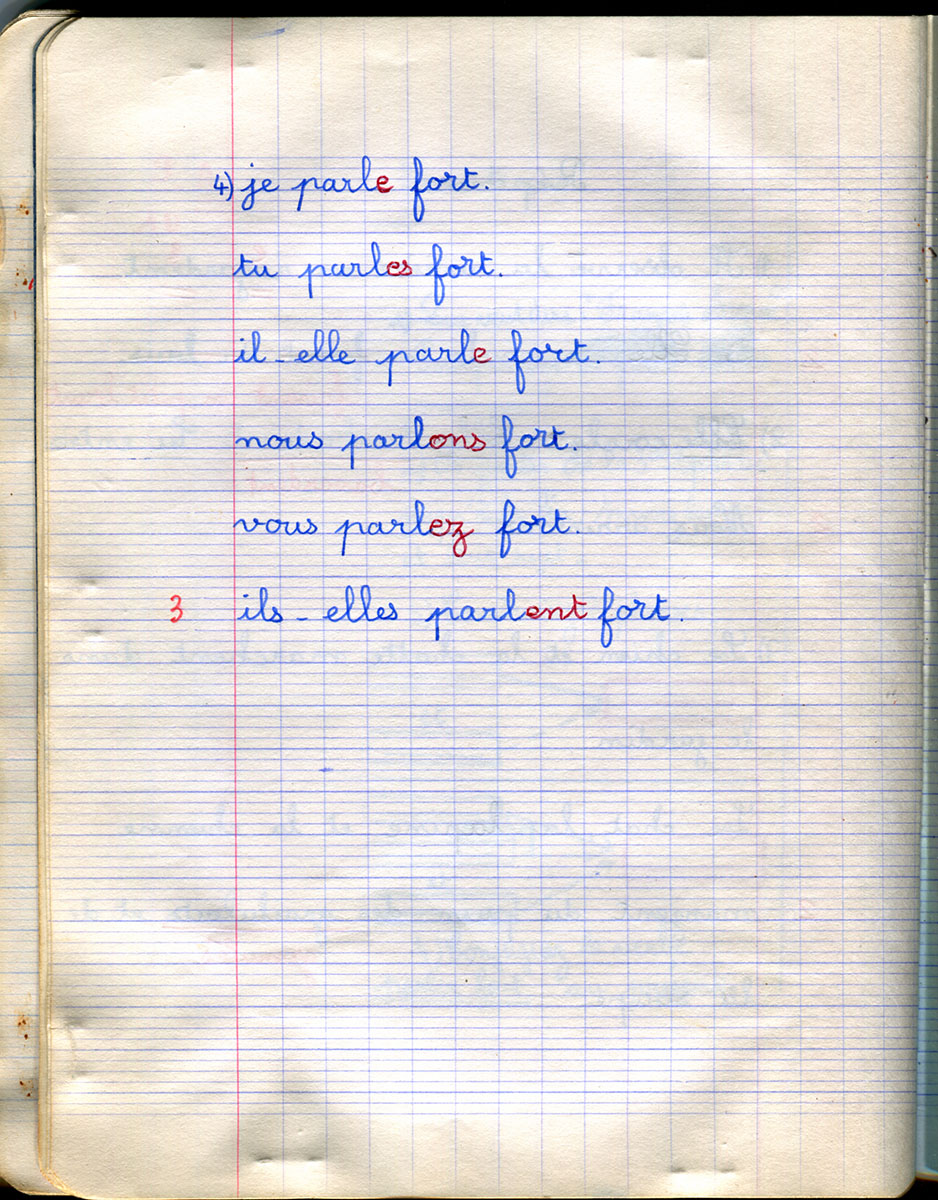 4) je parle fort.
tu parles fort.
il - elle parle fort.
nous parlons fort.
vous parlez fort.
3 ils - elles parlent fort.